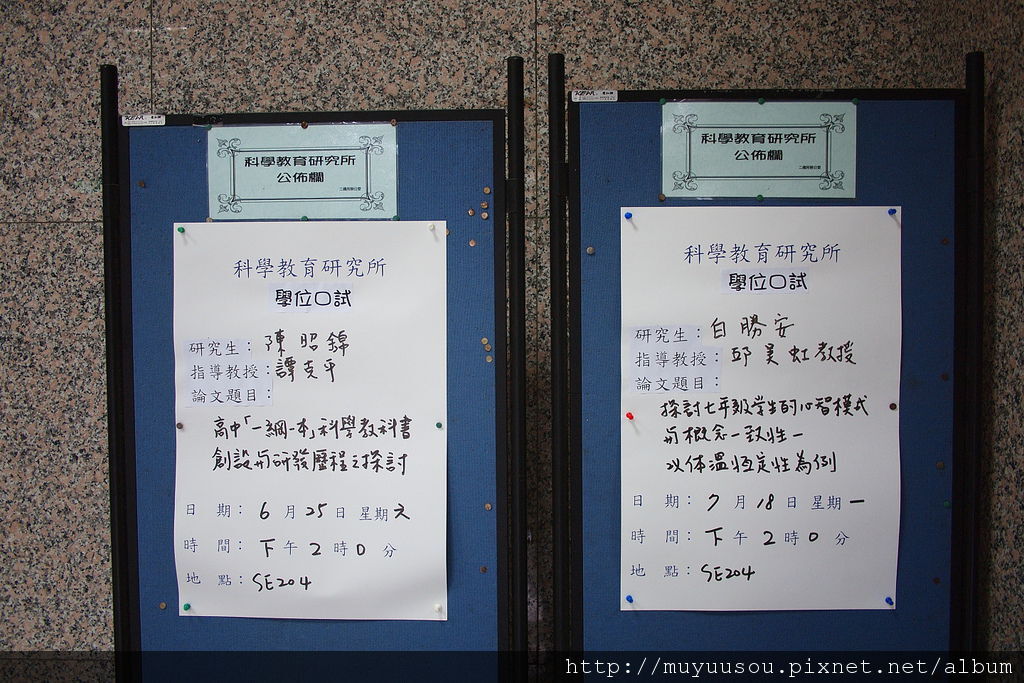 科學教育研究所
公佈欄
科學教育研究所
學位口試
研究生：陳昭錦
指導教授：譚克平
論文題目：
高中「一綱一本」科學教科書
創設與研發歷程之探討
日 期：6月25日星期六
時 間：下午2時0分
地 點：SE204
科學教育研究所
公佈欄
科學教育研究所
學位口試
研究生：白勝安
指導教授：邱美虹教授
論文題目：
探討七年級學生的心智模式
與概念一致性－
以体溫恆定性為例
日 期：7月18日星期一
時 間：下午2時0分
地 點：SE204
http://muyuusou.pixnet.net/album